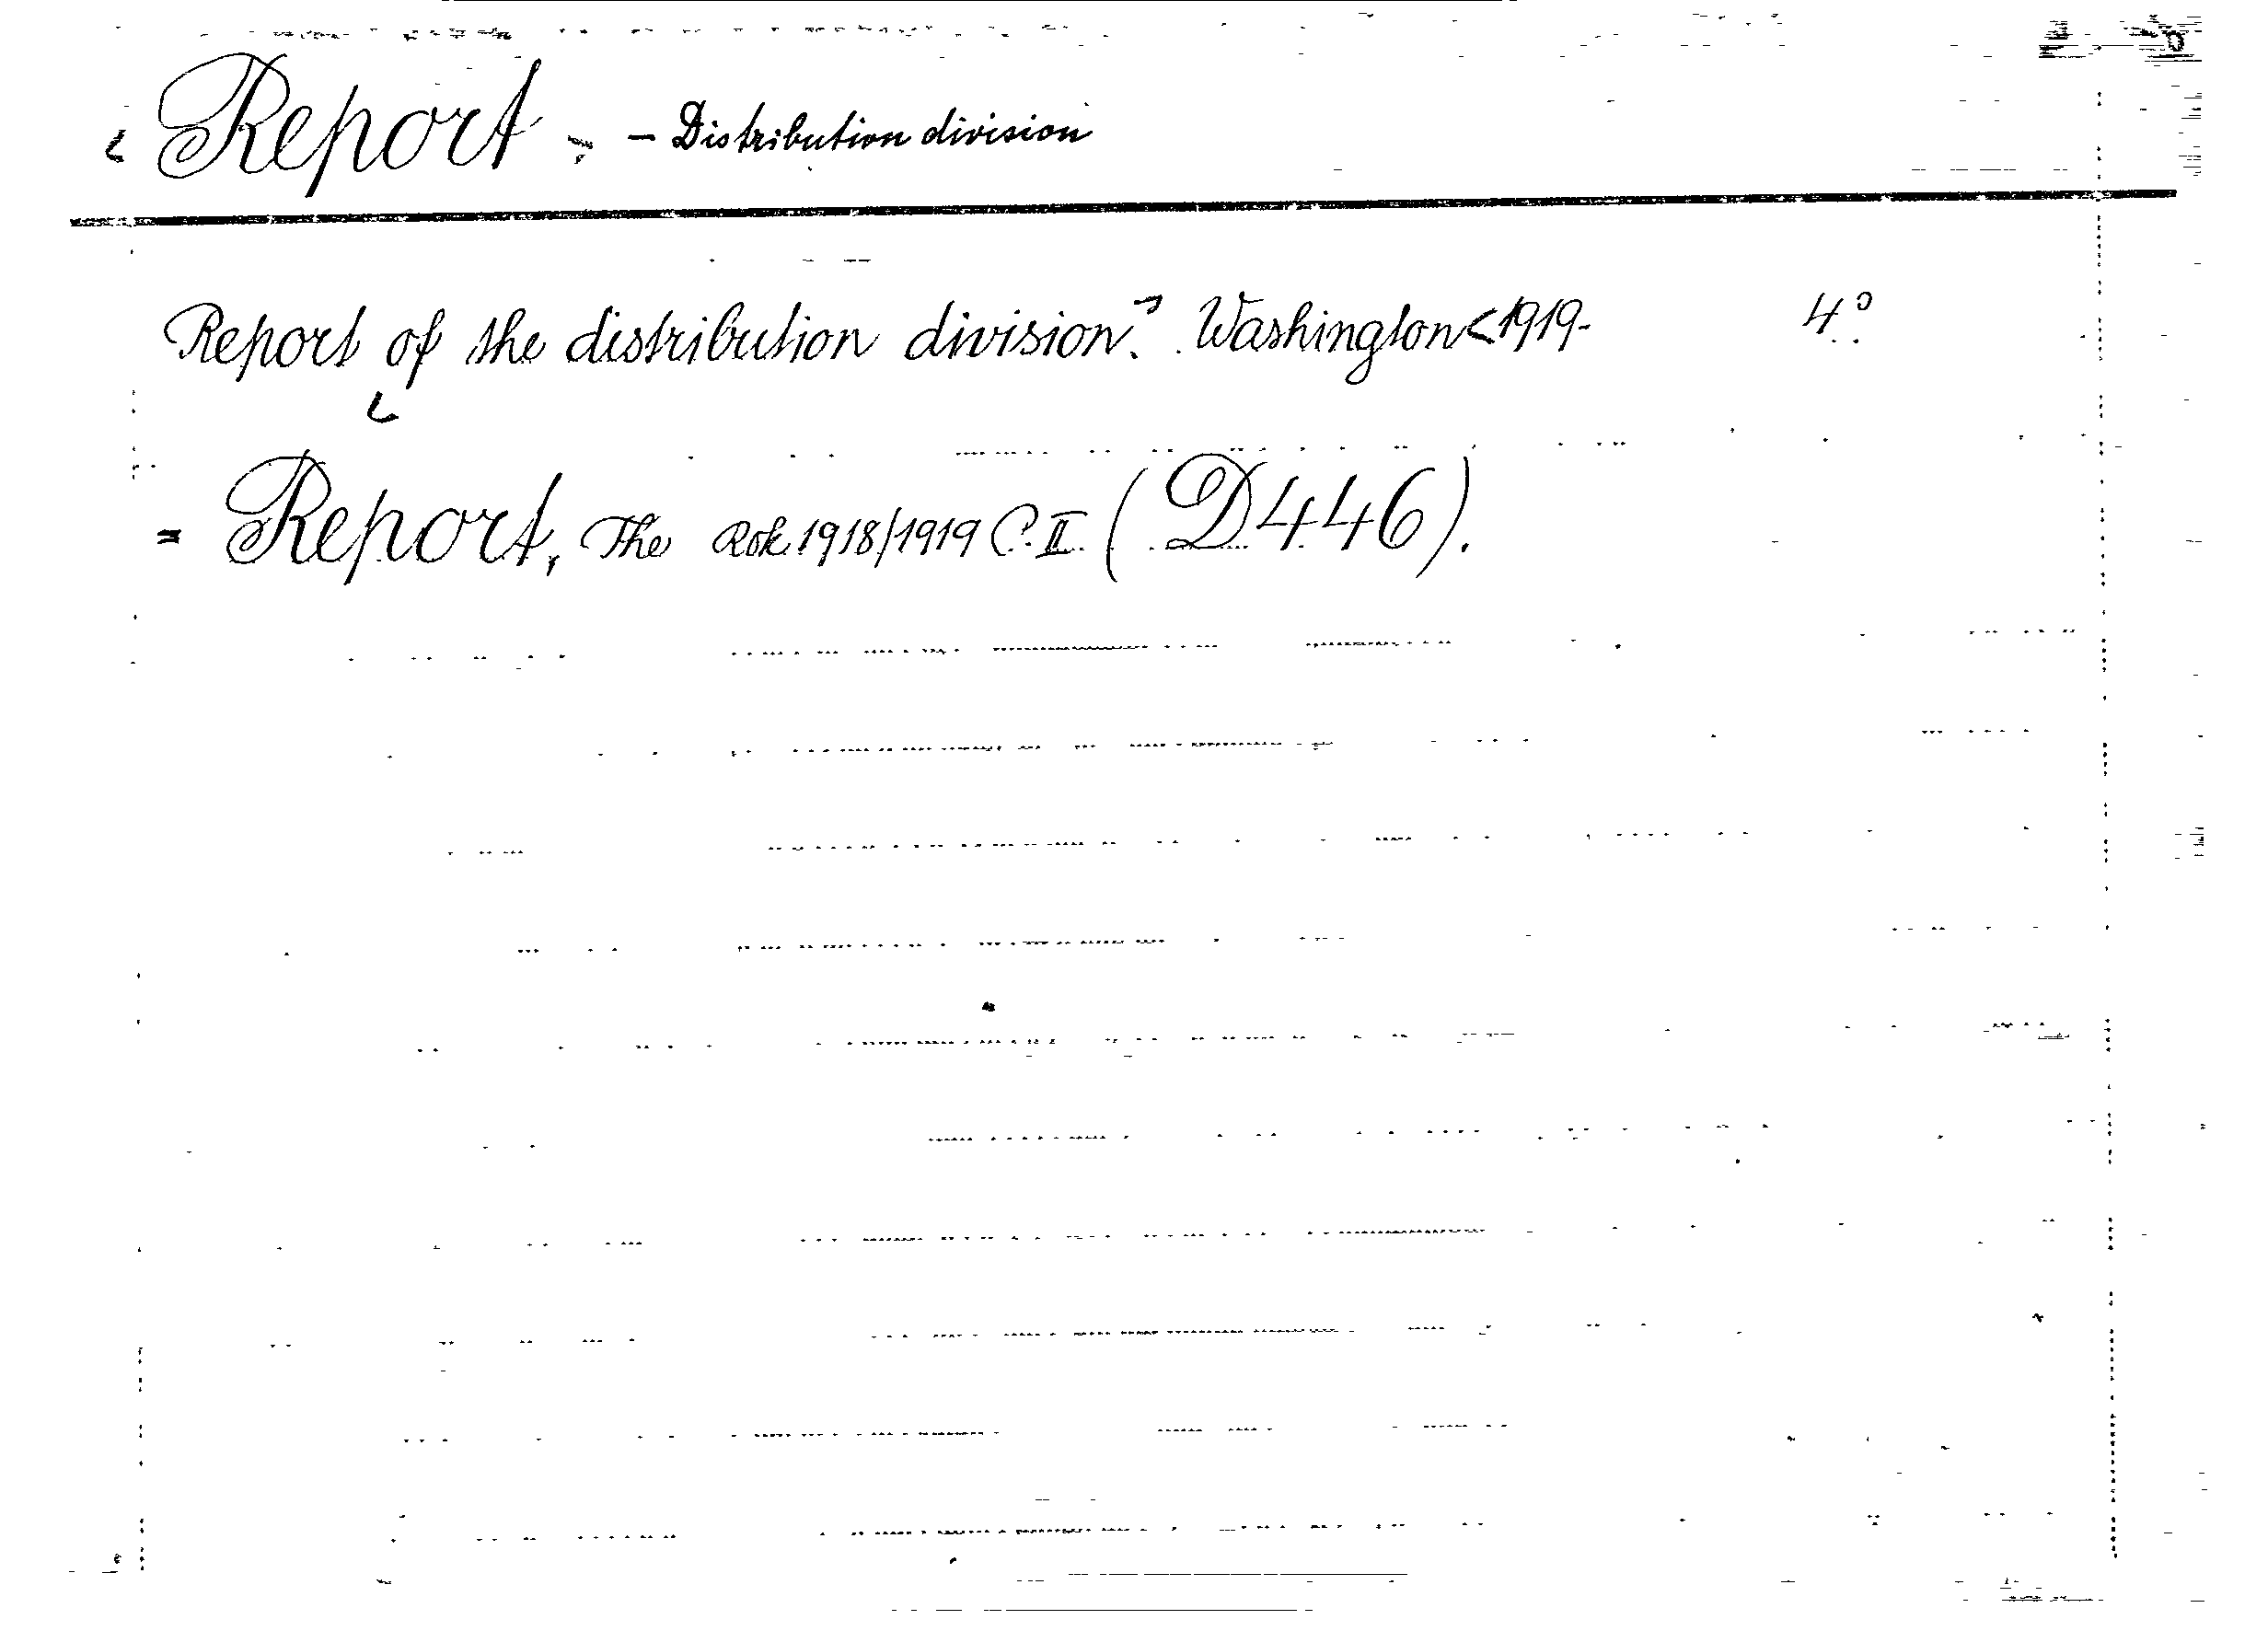 < Report > - Distribution division
Report of the distribution division. Washington < 1919- 4°
= Report, The Rok 1918/1919 Č. II (D446).